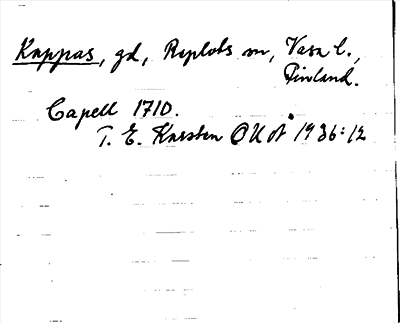 Kappas, gd, Replots sn, Vasa l.,
Finland.
Capell 1710.
T. E. Karsten OUÅ 1936:12